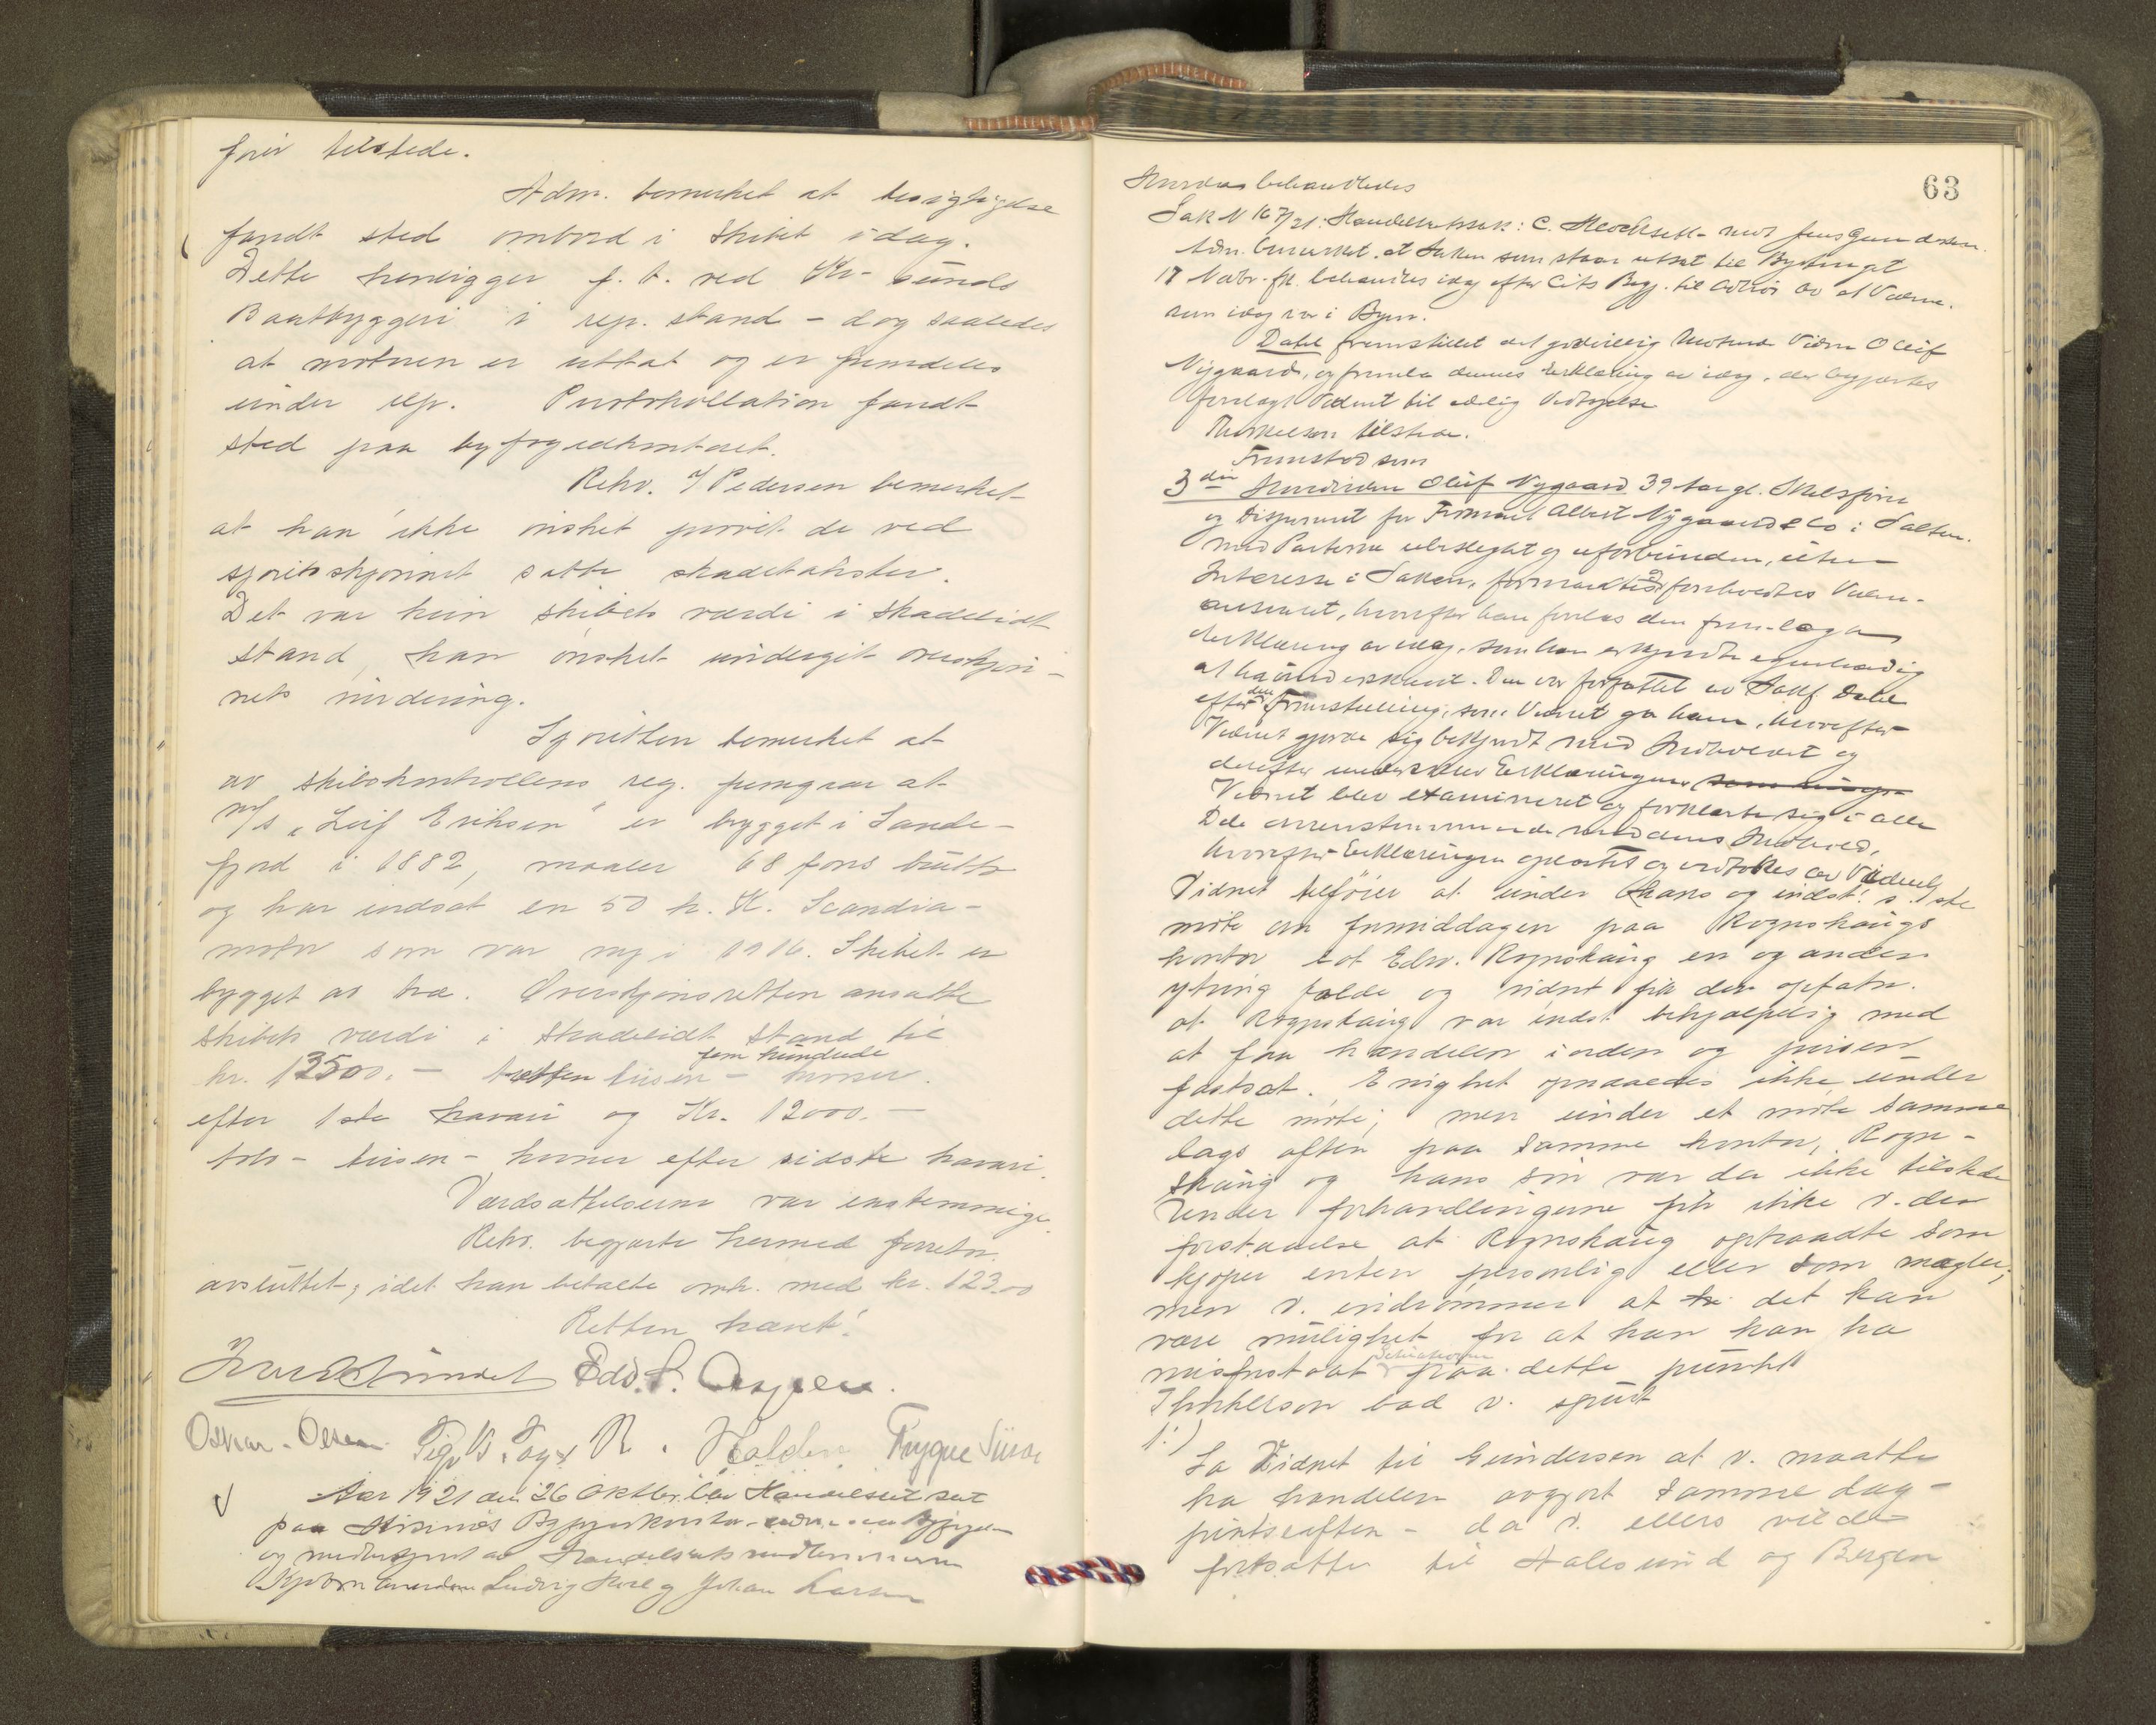 før tilstede.
Adm. bemerket at besigtigelse
fandt sted ombord i skibet idag.
Dette henligger f. t. ved Kr-sunds
Baatbyggeri i rep. stand - dog saaledes
at motoren er uttat og er fremdeles
under rep. Protokollation fandt
sted paa byfogedkontoret.
Rekv. Pedersen bemerket
at han ikke ønsket prøvet de ved
sjøretsskjønnet satte skadetakster.
Det var kun skibets værdi i skadelidt
stand, han ønsket undergit overskjøn-
nets vurdering.
Sjøretten bemerket at
av skibskontrollens reg. fremgaar at
m/s "Leif Eriksen" er bygget i Sande-
fjord i 1882, maaler 68 tons brutto
og har indsat en 50 h. K. Scandia-
motor som var ny i 1916. Skibet er
bygget av træ. Overskjønsretten ansatte
skibets værdi i skadelidt stand til
kr. 13500.- tretten tusen - fem hundrede kroner.
efter 1ste havari og Kr. 12000.-
tolv - tusen - kroner efter sidste havari.
Værdsættelserne var enstemmige.
Rekv. begjærte hermed forretn.
avsluttet, idet han betalte omk. med kr. 123.00
Retten hævet!
Edv. S. Aspen.
Oskar Olsen R. Halden Trygve
Aar 1921 den 26 Oktbr. blev Handelsret sat
paa Kr.sunds
og meddomsmændene
Ludvig og Johan Larsen
63
Hvorda behandledes
Sak N 167/21: Handelsretssak: C. mot Jens Gundersen.
Adm. bemerket at Saken som staar utsat til Bytinget
17 Novbr. behandles idag efter Cits Begj. til Avhør av et Vidne.
som idag var i Byen.
Dahl fremstillet det godvillig møtende Vidne Oluf
Nygaard, og fremla dennes Erklæring av idag, der begjærtes
forelagt Vidnet til edelig Vedtagelse
Thorkelson tilstede.
Fremstod som
3die Hovedvidne Oluf Nygaard 39 Aar gl. Skibsfører
og Disponent for Firmaet Albert Nygaard & Co i Salten.
med Parterne ubeslegtet og uforbunden, uten
Interesse i Saken, formantes og foreholdtes Vidne-
ansvaret, hvorefter han forelæs den fremlagte
Erklæring av idag, som han erkjendte egenhændig
at ha underskrevet. Den var forfattet av Sakf. Dahl
efter den Fremstilling, som Vidnet ga ham, hvorefter
Vidnet gjorde sig bekjendt med Indholdet og
derefter underskrev Erklæringen
Vidnet blev examineret og forklarte sig i alle
Dele overensstemmende med dens Indhold,
hvorefter Erklæringen oplæstes og vedtokes av Vidnet
Vidnet tilføier at under hans og indst. s. 1ste
møte om formiddagen paa Rognskaugs
kontor lot Edv. Rognskaug en og anden
ytring falde og vidnet fik den opfatn.
at Rognskaug var indst. behjælpelig med
at faa handelen i orden og prisen
fastsat. Enighet opnaaedes ikke under
dette møte; men under et møte samme
dags aften paa samme kontor, Rogn-
skaug og hans søn var da ikke tilstede
Under forhandlingerne fik ikke v. den
forstaaelse at Rognskaug optraadte som
kjøper enten personlig eller som megler,
men v. indrømmer at det kan
være mulighet for at han kan ha
misforstaat Situationen paa dette punkt
Thorkelson bad v. spurt
1:)
Sa Vidnet til Gundersen at v. maatte
ha handelen avgjort samme dag -
pintseaften - da v. ellers vilde
fortsætte til Aalesund og Bergen